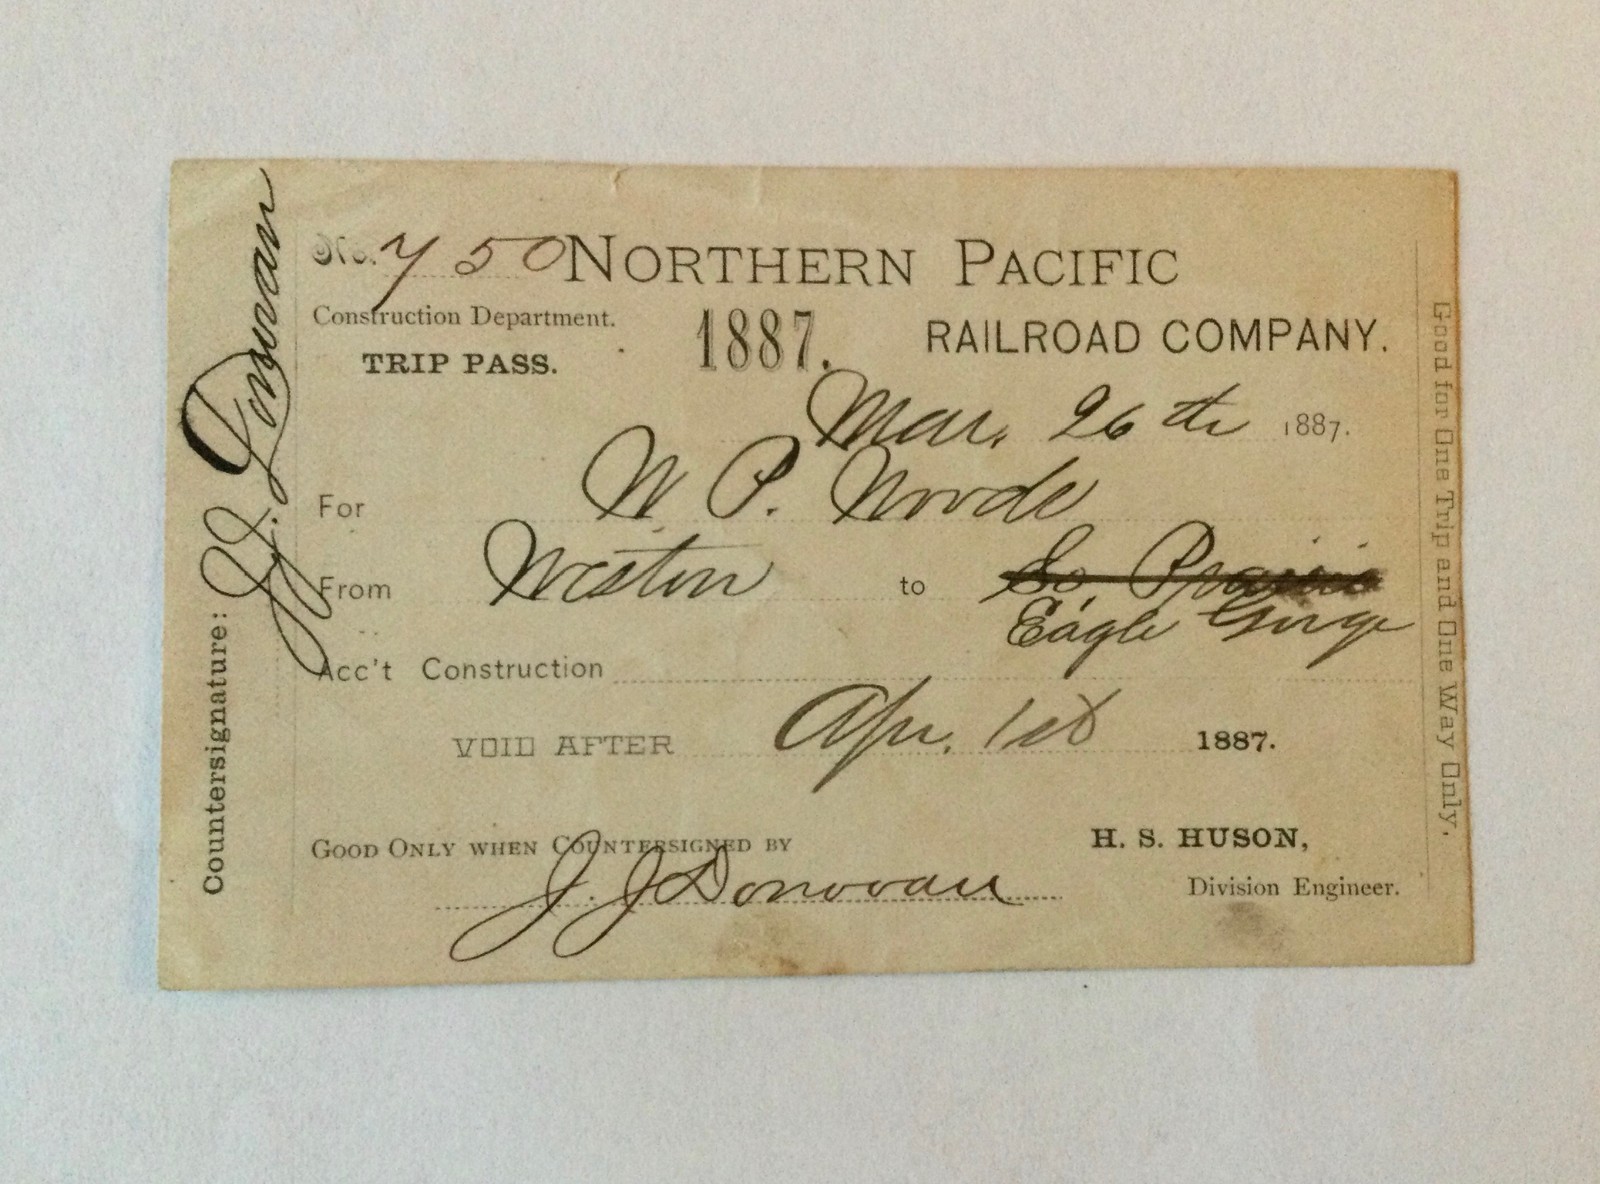 No. 750 NORTHERN PACIFIC
Construction Department. 1887. RAILROAD COMPANY.
TRIP PASS.
Mar. 26th 1887.
For W P. Woods
From Weston to So Prairie
Eagle Gorge
Acc't Construction
VOID AFTER Apr. 1st 1887.
GOOD ONLY WHEN COUNTERSIGNED BY H. S. HUSON,
J. J Donovan Division Engineer.
Countersignature: J. J. Donovan
Good for One Trip and One Way Only.